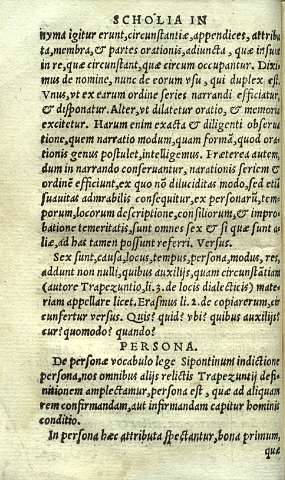 SCHOLIA IN
nyma igitur erunt, circunstantiæ, appendices, attribu
ta, membra, & partes orationis, adiuncta, quæ insunt
in re, quæ circunstant, quæ circum occupantur. Dixi-
mus de nomine, nunc de eorum vsu, qui duplex est.
Vnus, vt ex earum ordine series narrandi efficiatur,
& disponatur. Alter, vt dilatetur oratio, & memoria
excitetur. Harum enim exacta & diligenti obserua
tione, quem narratio modum, quam formã, quod ora-
tionis genus postulet, intelligemus. Præterea autem,
dum in narrando conseruantur, narationis seriem &
ordinẽ efficiunt, ex quo nõ diluciditas modo, sed etiã
suauitas admirabilis consequitur, ex personarũ, tem-
porum, locorum descriptione, consiliorum, & impro-
batione temeritatis, sunt omnes sex & si quæ sunt a-
liæ, ad has tamen possunt referri. Versus.
Sex sunt, causa, locus, tempus, persona, modus, res,
addunt non nulli, quibus auxilijs, quam circũstãtiam
(autore Trapezuntio, li. 3. de locis dialecticis) mate-
riam appellare licet. Erasmus li. 2. de copiarerum, cir
cunfertur versus. Quis? quid? vbi? quibus auxilijs?
cur? quomodo? quando?
PERSONA.
De personæ vocabulo lege Sipontinum indictione
persona, nos omnibus alijs relictis Trapezuntij defi-
nitionem amplectamur, persona est, quæ ad aliquam
rem confirmandam, aut infirmandam capitur hominis
conditio.
In persona hæc attributa spectantur, bona primum,
quæ